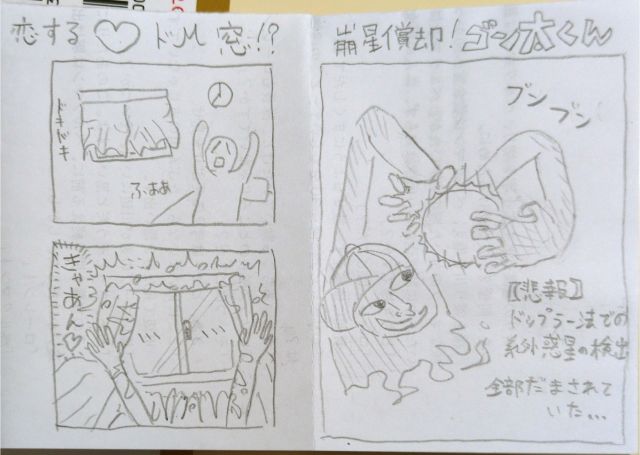 恋する♡ドM窓!?
ドキドキ
ふぁぁ
きゃあん♡
崩星償却!ゴン太くん
ブンブン
【悲報】
ドップラー法での
系外惑星の検出
全部だまされて
いた...